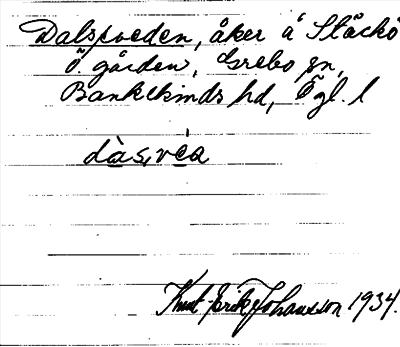 Dalsveden, åker å Stäckö
Ö. gården, Grebo sn,
Bankekinds hd, Ögl. l
dàs,véa
Knut-Erik Johansson 1934.